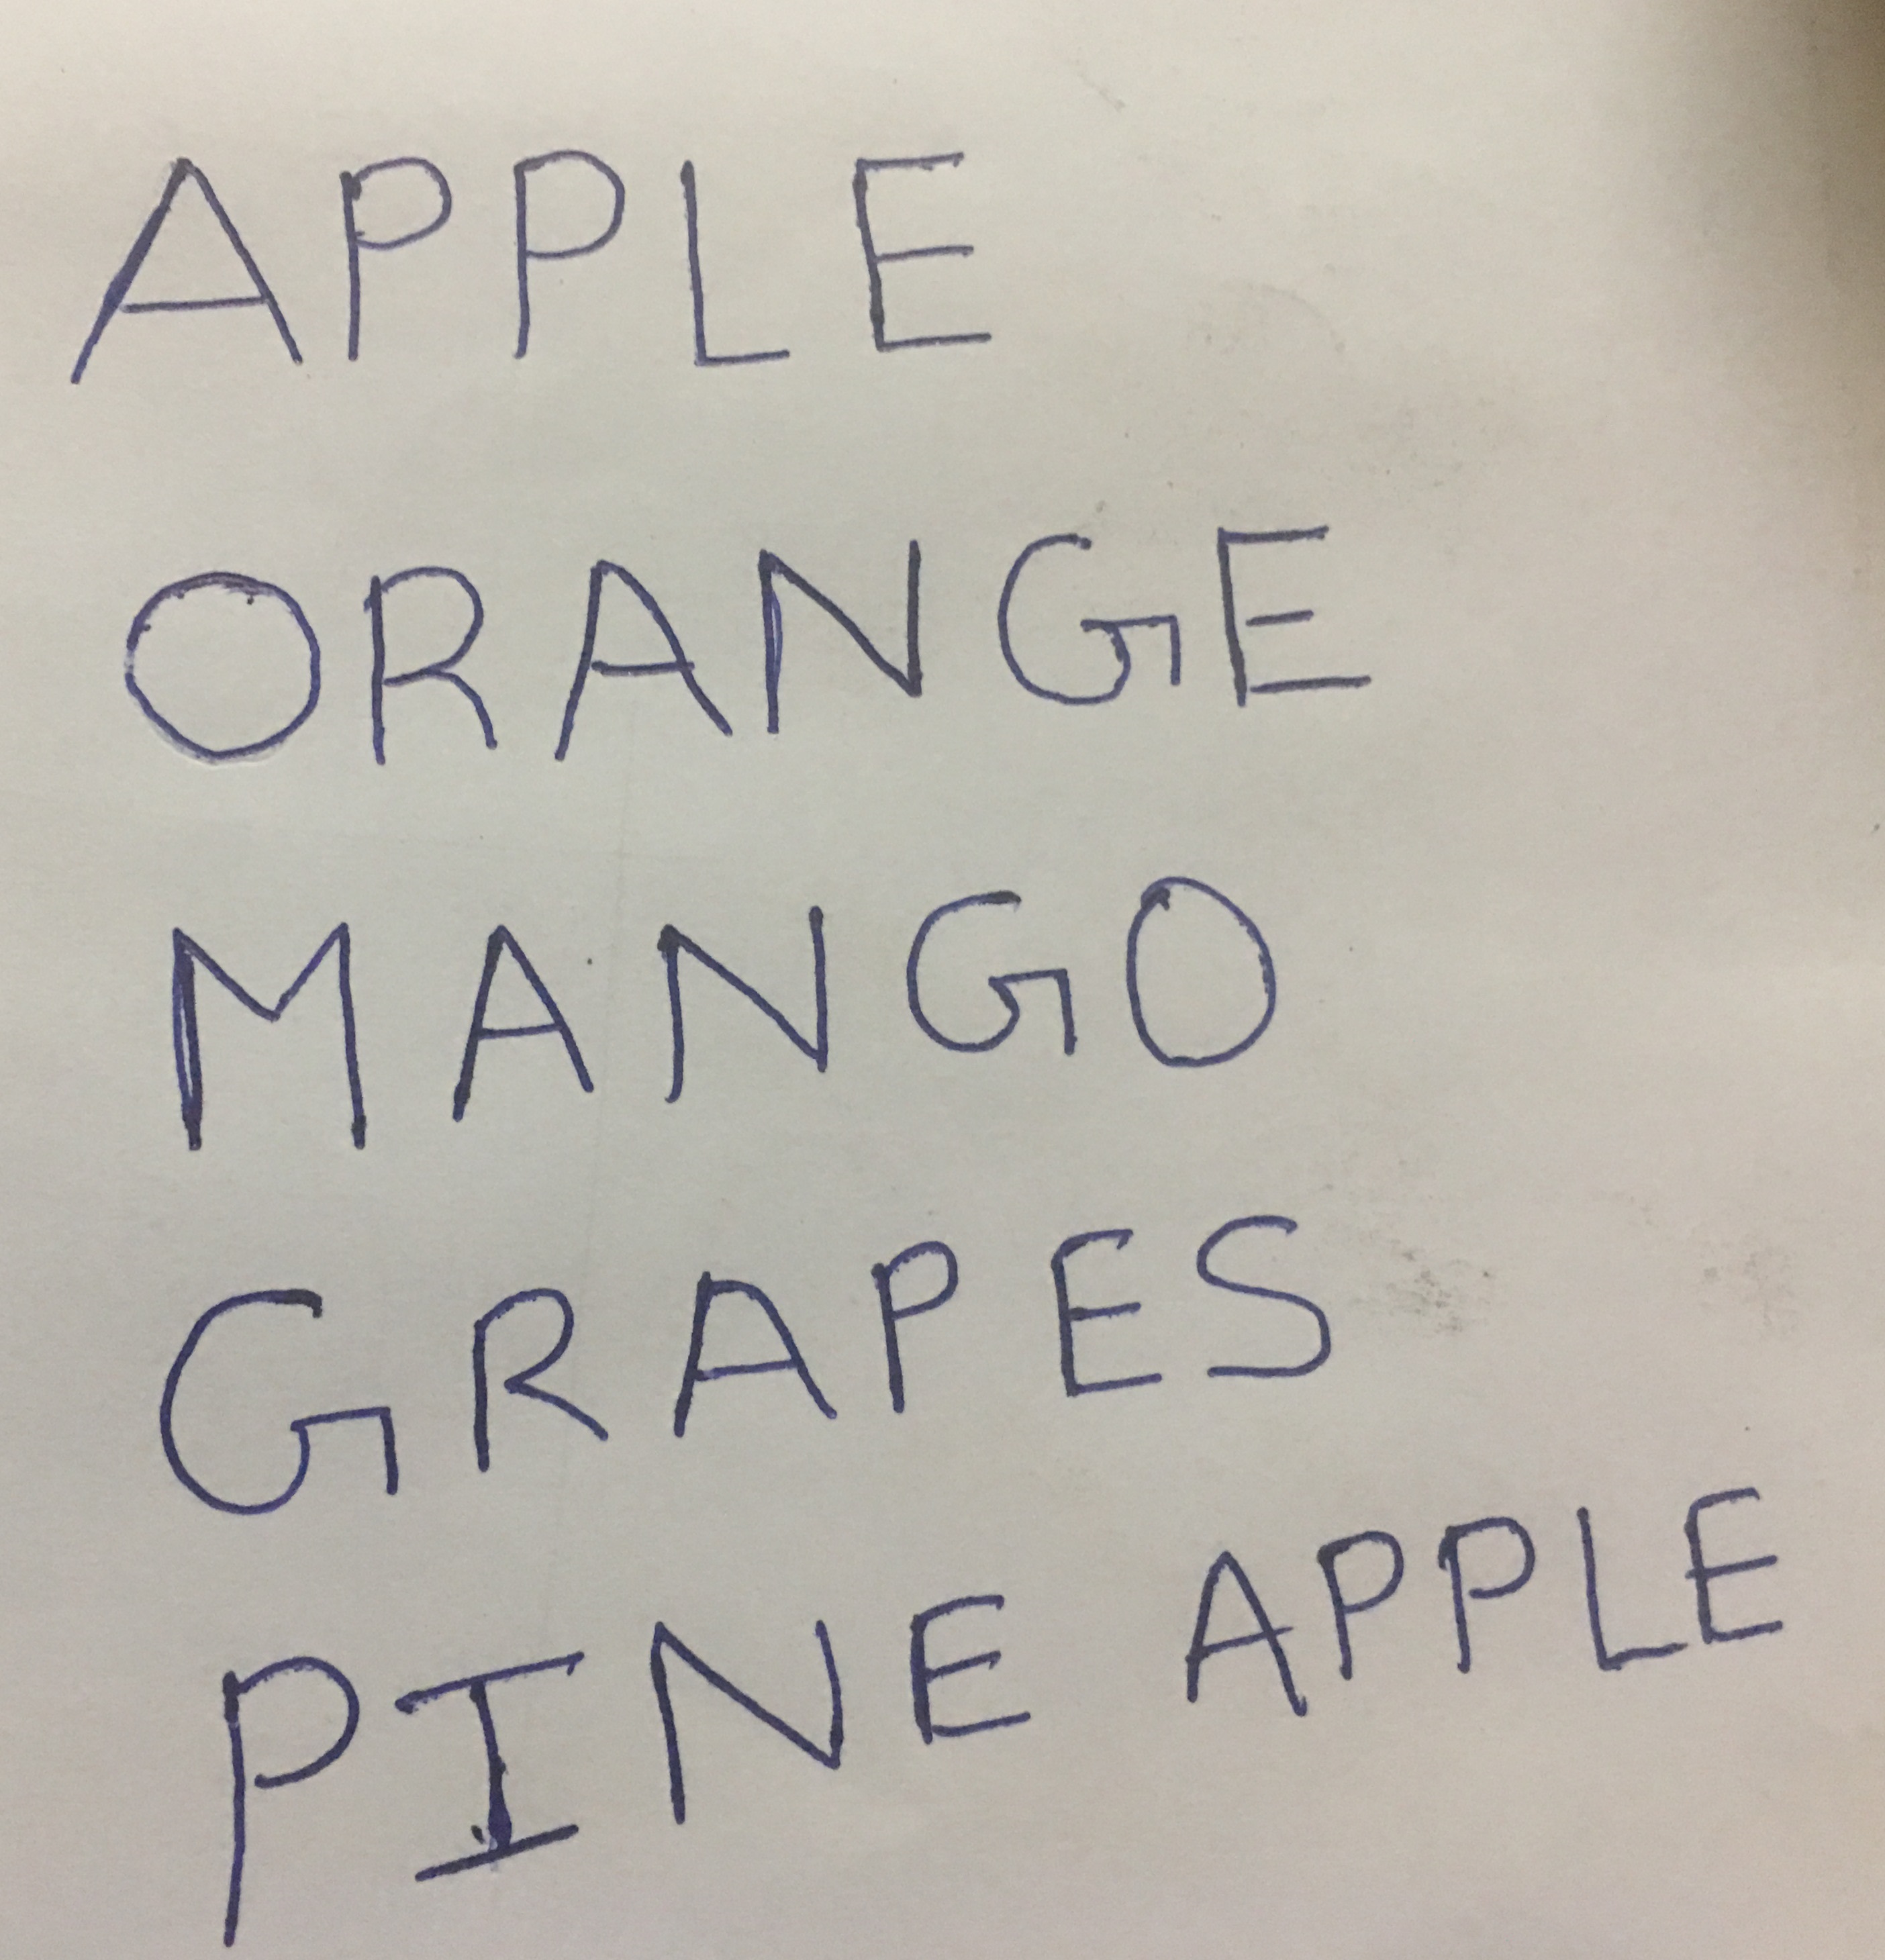 APPLE
ORANGE
MANGO
GRAPES
PINE APPLE